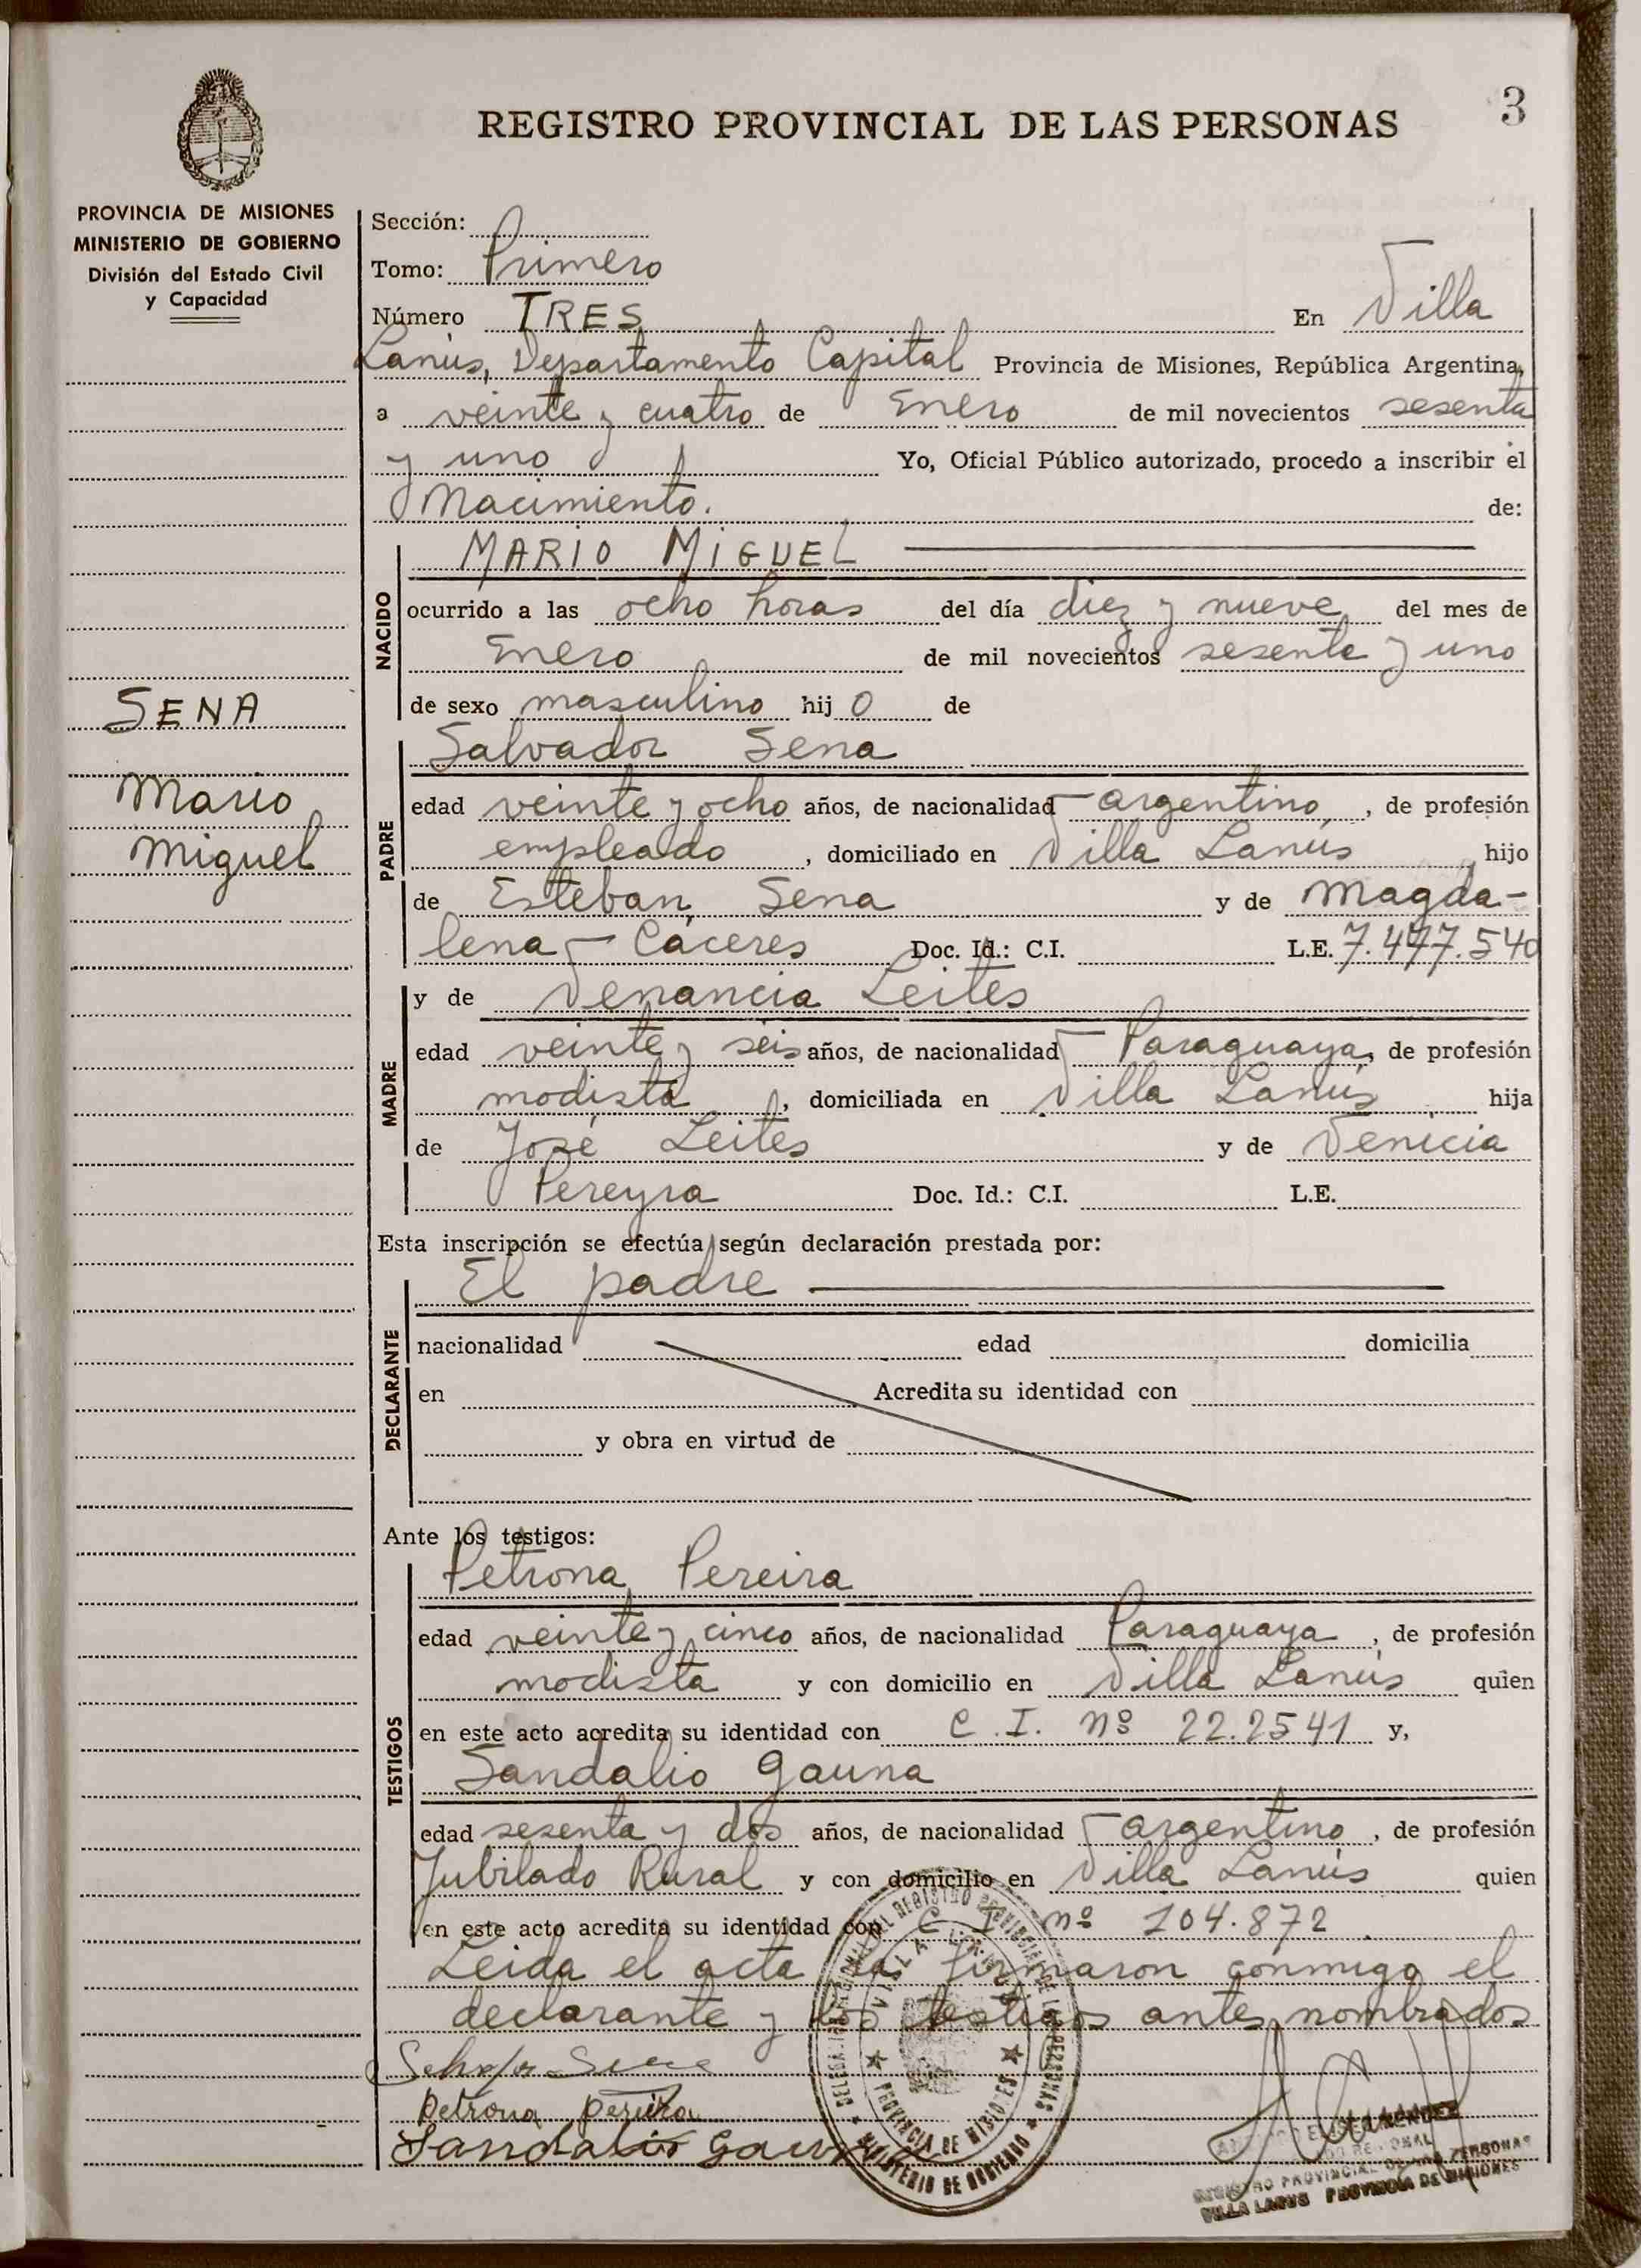 3
REGISTRO PROVINCIAL DE LAS PERSONAS
PROVINCIA DE MISIONES
MINISTERIO DE GOBIERNO
División del Estado Civil
y Capacidad
SENA
Mario
Miguel
Sección:
Tomo: Primero
Número TRES En Villa
Lanús, Departamento Capital Provincia de Misiones, República Argentina,
a veinte y cuatro de Enero de mil novecientos sesenta
y uno Yo, Oficial Público autorizado, procedo a inscribir el
Nacimiento. de:
NACIDO
MARIO MIGUEL
ocurrido a las ocho horas del día diez y nueve del mes de
Enero de mil novecientos sesenta y uno
de sexo masculino hij o de
PADRE
Salvador Sena
edad veinte y ocho años, de nacionalidad argentino, de profesión
empleado, domiciliado en Villa Lanús, hijo
de Esteban Sena y de Magda-
lena Cáceres Doc. Id.: C.I. L.E. 7.477.540
MADRE
y de Venancia Leites
edad veinte y seis años, de nacionalidad Paraguaya, de profesión
modista, domiciliada en Villa Lanús hija
de José Leites y de Venicia
Pereyra Doc. Id.: C.I. L.E.
Esta inscripción se efectúa según declaración prestada por:
DECLARANTE
El padre
nacionalidad edad domicilia
en Acredita su identidad con
y obra en virtud de
Ante los testigos:
TESTIGOS
Petrona Pereira
edad veinte y cinco años, de nacionalidad Paraguaya, de profesión
modista y con domicilio en Villa Lanús quien
en este acto acredita su identidad con C.I. Nº 22.2541 y,
Sandalio Gauna
edad sesenta y dos años, de nacionalidad argentino, de profesión
Jubilado Rural y con domicilio en Villa Lanús quien
en este acto acredita su identidad con C I nº 104.872
Leida el acta la firmaron conmigo el
declarante y los testigos antes nombrados
Petrona Pereira
Sandalio Gauna
REGISTRO PROVINCIAL DE LAS PERSONAS
VILLA LANUS
PROVINCIA DE MISIONES
MINISTERIO DE GOBIERNO
REGISTRO PROVINCIAL DE LAS PERSONAS
VILLA LANUS PROVINCIA DE MISIONES